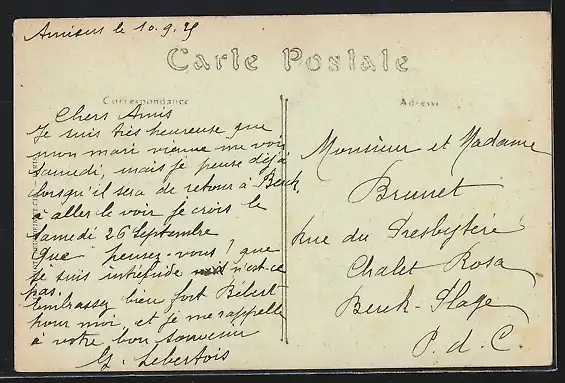 Amiens le 10.9.25
Carte Postale
Correspondance
Adresse
Chers Amis
Je suis très heureuse que
mon mari vienne me voir
samedi, mais je pense déjà
lorsqu'il sera de retour à Berck,
à aller le voir je crois le
samedi 26 Septembre
Que pensez-vous ? que
je suis intrépide n'est-ce
pas.
Embrassez bien fort Bébert
pour moi, et je me rappelle
à votre bon souvenir
G. Lebertois
Monsieur et Madame
Brunet
Rue du Presbytère
Chalet Rosa
Berck-Plage
P. d. C.